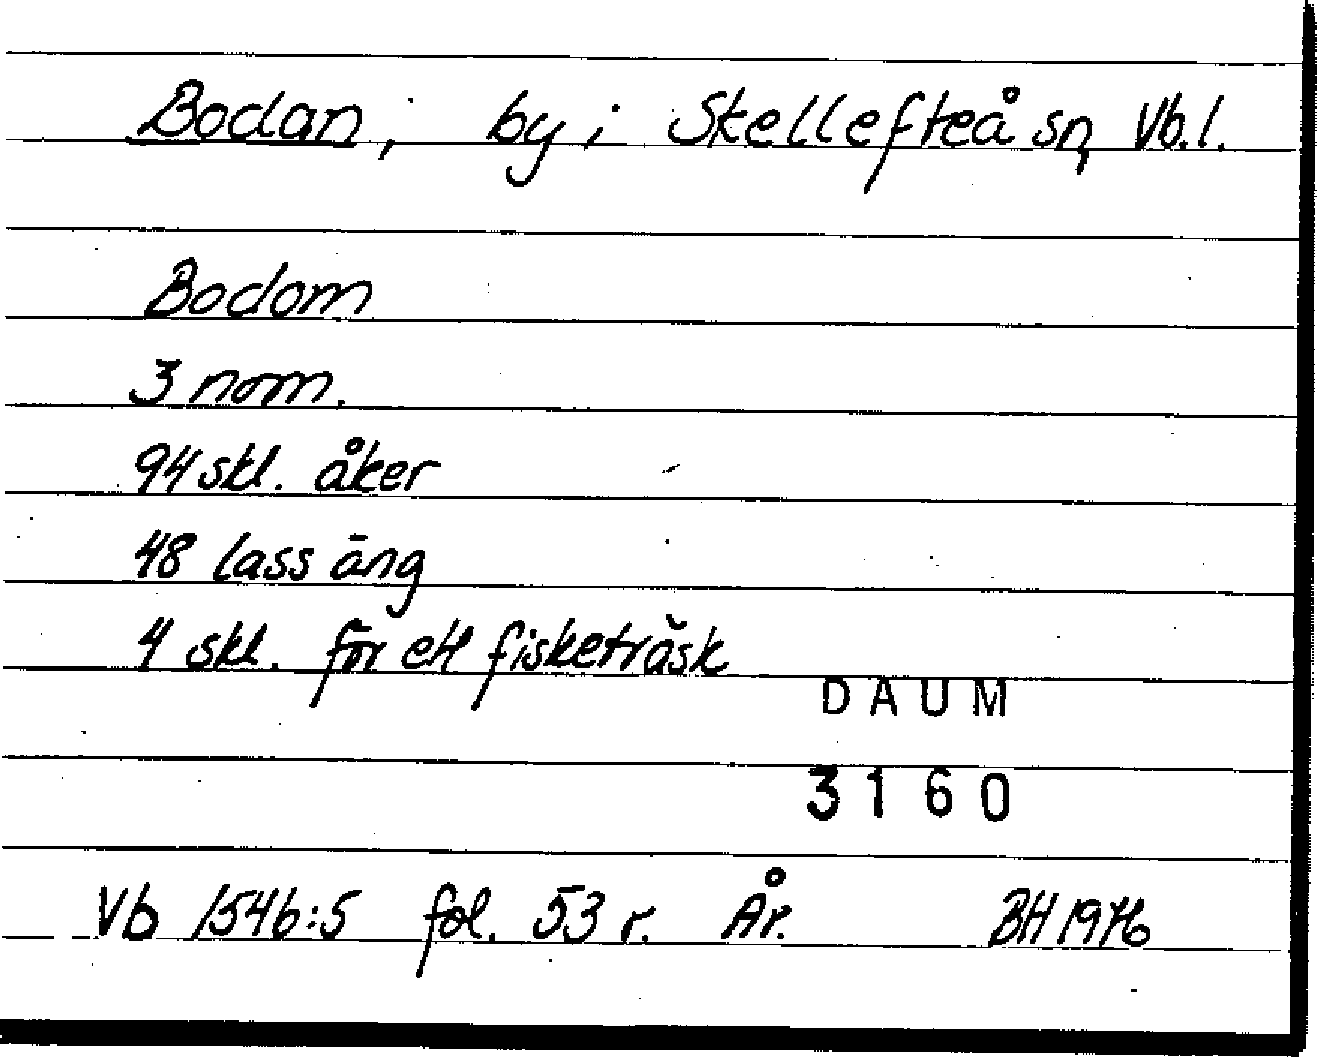 Bodan, by i Skellefteå sn, Vb.l.
Bodom
3 nom.
94 skl. åker
48 lass äng
4 skl. för ett fisketräsk
DAUM
3160
Vb 1546:5 fol. 53 r. År. BH 1976